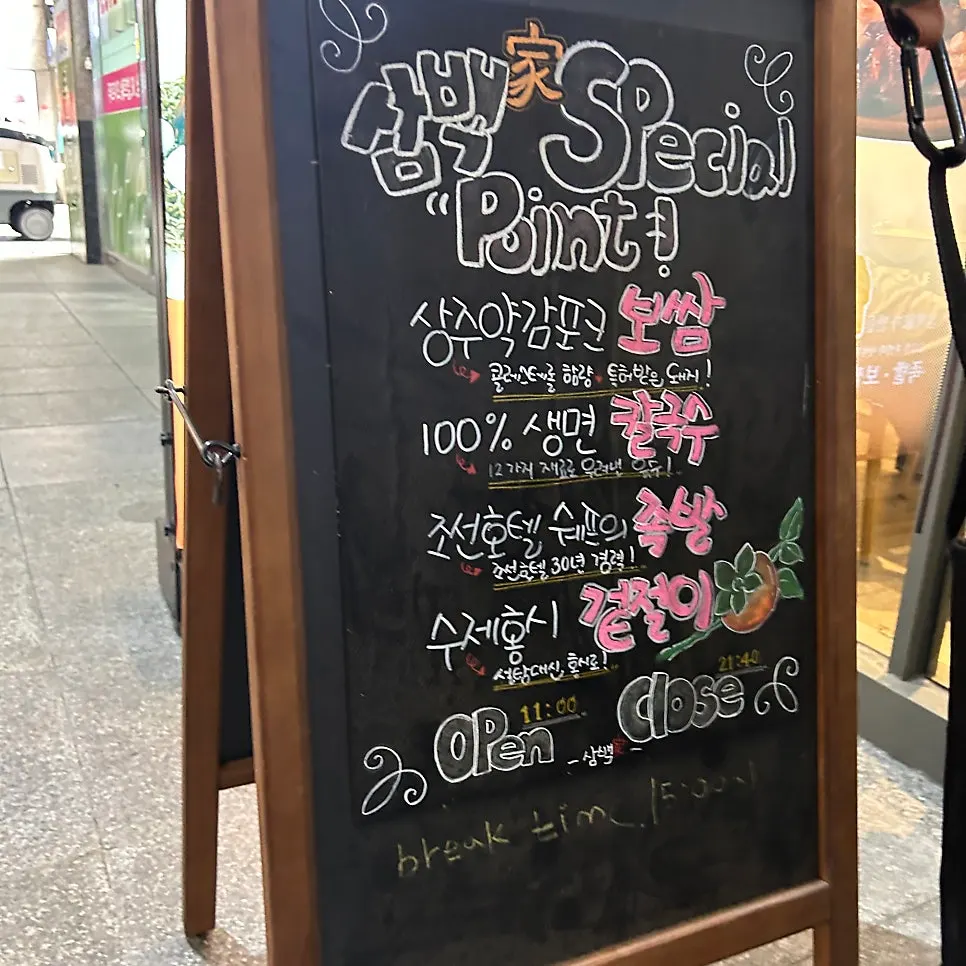 삼백家 Special
"Point!
상주약감포크 보쌈
콜레스테롤 함량↓ 특허받은 돼지!
100% 생면 칼국수
12가지 재료로 우려낸 육수!
조선호텔 쉐프의 족발
조선호텔 30년 경력!
수제홍시 겉절이
설탕대신, 홍시로!
OPen 11:00 Close 21:40
- 삼백家 -
break time 15:00~